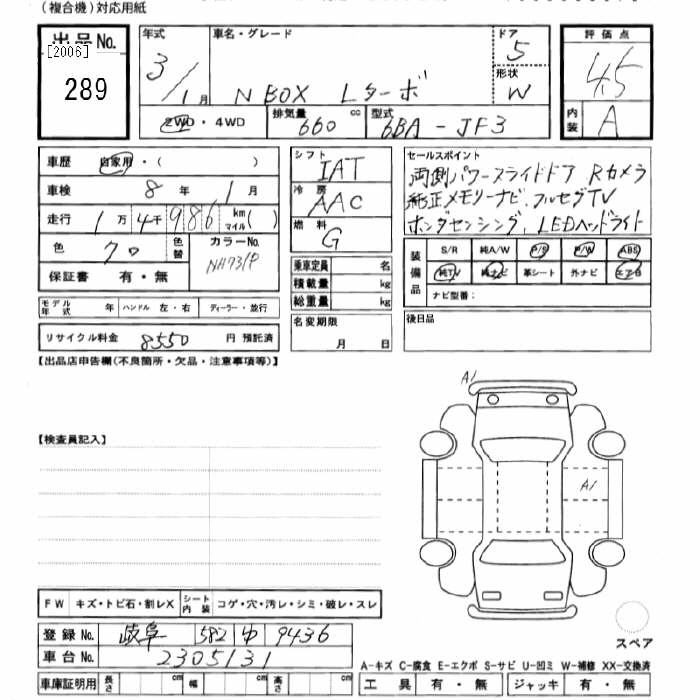 (複合機)対応用紙
出品No. [2006] 289
年式 3/1月
車名・グレード N BOX Lターボ
ドア 5
形状 W
評価点 4.5
内装 A
2WD・4WD
排気量 660 cc
型式 6BA-JF3
車歴 自家用・( )
車検 8年 1月
走行 1万 4千 986 km マイル( )
色 クロ 色替
カラーNo. NH731P
保証書 有・無
シフト IAT
冷房 AAC
燃料 G
乗車定員 名
積載量 kg
総重量 kg
セールスポイント
両側パワースライドドア Rカメラ
純正メモリーナビ、フルセグTV
ホンダセンシング、LEDヘッドライト
装備品 S/R 純A/W P/S P/W ABS
純TV 純ナビ 革シート 外ナビ エアB
ナビ型番:
モデル年式 年 ハンドル 左・右 ディーラー・並行
リサイクル料金 8550 円 預託済
名変期限 月 日
後日品
【出品店申告欄(不良箇所・欠品・注意事項等)】
A1
【検査員記入】
A1
FW キズ・トビ石・割レX シート内装 コゲ・穴・汚レ・シミ・破レ・スレ
登録No. 岐阜 582 ゆ 9436
車台No. 2305131
スペア
A-キズ C-腐食 E-エクボ S-サビ U-凹ミ W-補修 XX-交換済
車庫証明用 長さ cm 幅 cm 高さ cm
工具 有・無 ジャッキ 有・無